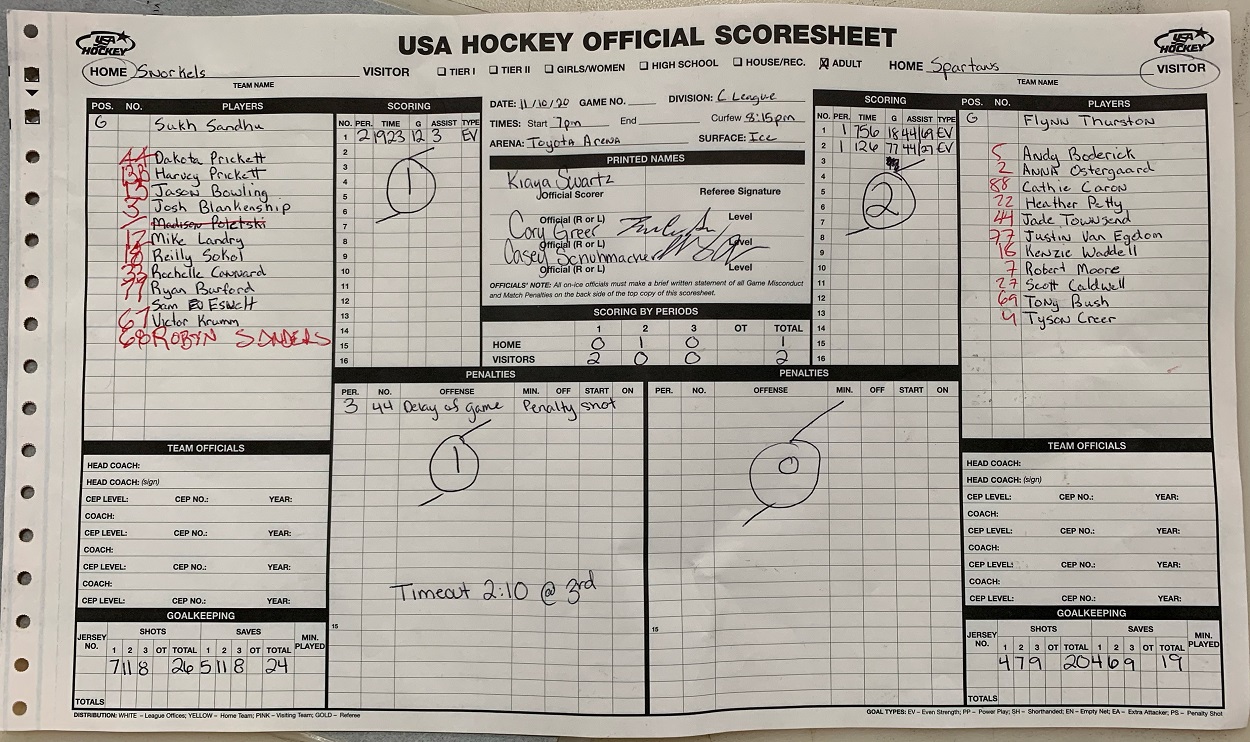 USA HOCKEY OFFICIAL SCORESHEET
USA HOCKEY
USA HOCKEY
HOME Snorkels VISITOR
TEAM NAME
TIER I TIER II GIRLS/WOMEN HIGH SCHOOL HOUSE/REC. ADULT
HOME Spartans VISITOR
TEAM NAME
POS. NO. PLAYERS
G Sukh Sandhu
44 Dakota Prickett
Harvey Prickett
13 Jason Bowling
3 Josh Blankenship
Mike Landry
Reilly Sokol
33 Rochelle
Ryan Burford
Sam Eswelt
67 Victor Krumm
68 ROBYN SANDERS
SCORING
NO. PER. TIME G ASSIST TYPE
1 2 1923 12 3 EV
2
3
4
5
6
7
8
9
10
11
12
13
14
15
16
1
DATE: 11/10/20 GAME NO. DIVISION: C League
TIMES: Start 7pm End Curfew 8:15pm
ARENA: Toyota Arena SURFACE: Ice
PRINTED NAMES
Kiaya Swartz
Official Scorer Referee Signature
Official (R or L) Level
Cory Greer
Official (R or L) Level
Casey Schuhmacher
Official (R or L) Level
OFFICIALS' NOTE: All on-ice officials must make a brief written statement of all Game Misconduct
and Match Penalties on the back side of the top copy of this scoresheet.
SCORING BY PERIODS
1 2 3 OT TOTAL
HOME 0 1 0 1
VISITORS 2 0 0 2
SCORING
NO. PER. TIME G ASSIST TYPE
1 1 756 18 44/69 EV
2 1 126 77 44/27 EV
3
4
5
6
7
8
9
10
11
12
13
14
15
16
2
POS. NO. PLAYERS
G Flynn Thurston
5 Andy Boderick
2 Anna Ostergaard
88 Cathie Caron
22 Heather Petty
44 Jade Townsend
77 Justin Van Egdom
Kenzie Waddell
7 Robert Moore
27 Scott Caldwell
69 Tony Bush
Tyson Creer
PENALTIES
PER. NO. OFFENSE MIN. OFF START ON
3 44 Delay of game Penalty shot
1
Timeout 2:10 @ 3rd
15
PENALTIES
PER. NO. OFFENSE MIN. OFF START ON
0
15
TEAM OFFICIALS
HEAD COACH:
HEAD COACH: (sign)
CEP LEVEL: CEP NO.: YEAR:
COACH:
CEP LEVEL: CEP NO.: YEAR:
COACH:
CEP LEVEL: CEP NO.: YEAR:
COACH:
CEP LEVEL: CEP NO.: YEAR:
GOALKEEPING
JERSEY NO. SHOTS SAVES MIN. PLAYED
1 2 3 OT TOTAL 1 2 3 OT TOTAL
7 11 8 26 5 11 8 24
TOTALS
TEAM OFFICIALS
HEAD COACH:
HEAD COACH: (sign)
CEP LEVEL: CEP NO.: YEAR:
COACH:
CEP LEVEL: CEP NO.: YEAR:
COACH:
CEP LEVEL: CEP NO.: YEAR:
COACH:
CEP LEVEL: CEP NO.: YEAR:
GOALKEEPING
JERSEY NO. SHOTS SAVES MIN. PLAYED
1 2 3 OT TOTAL 1 2 3 OT TOTAL
4 7 9 20 4 6 9 19
TOTALS
DISTRIBUTION: WHITE – League Offices; YELLOW – Home Team; PINK – Visiting Team; GOLD – Referee
GOAL TYPES: EV – Even Strength; PP – Power Play; SH – Shorthanded; EN – Empty Net; EA – Extra Attacker; PS – Penalty Shot